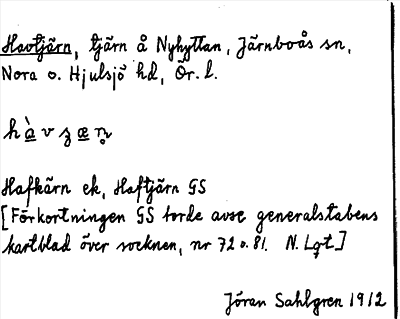 Havtjärn, tjärn å Nyhyttan, Järnboås sn,
Nora o. Hjulsjö hd, Ör. l.
hàvʒæn̥
Hafkärn ek, Haftjärn GS
[Förkortningen GS torde avse generalstabens
kartblad över socknen, nr 72 o. 81. N. Lgt.]
Jöran Sahlgren 1912